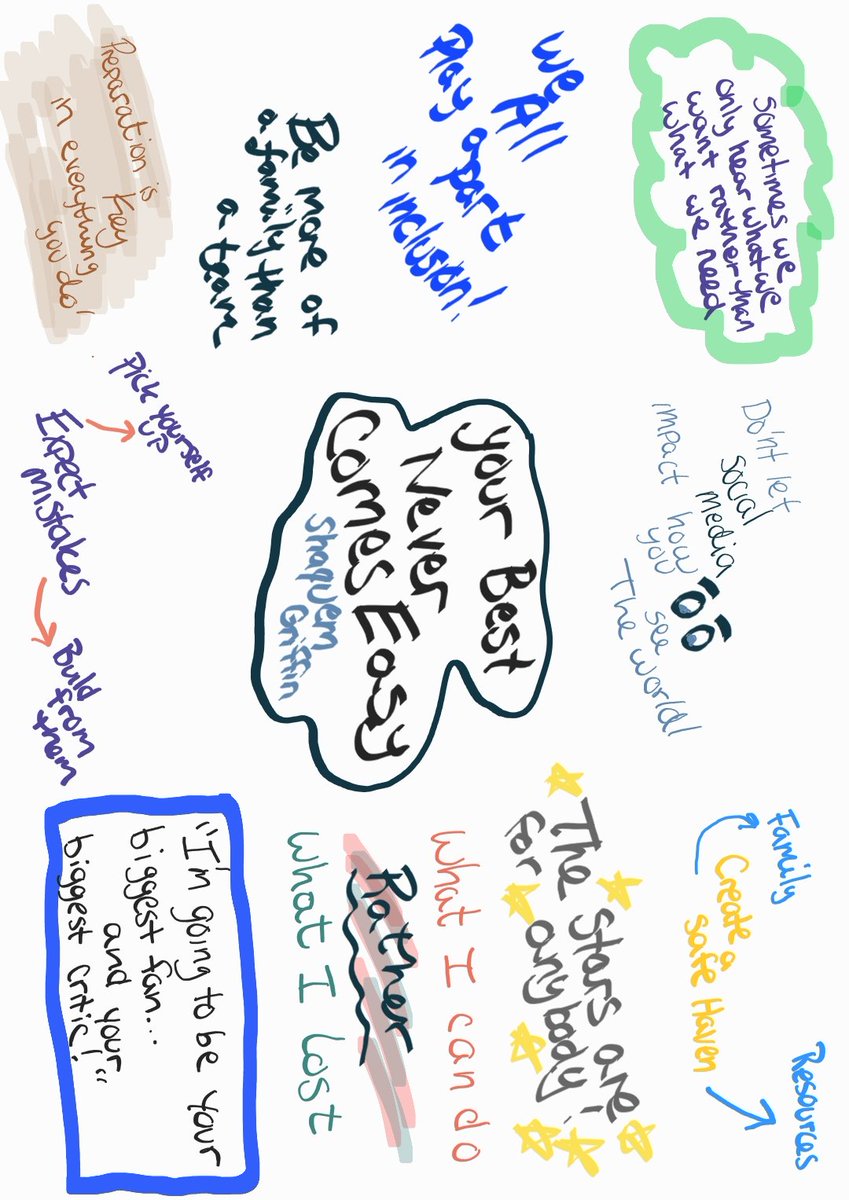 Sometimes we
only hear what we
want rather than
what we need
Do'nt let
social
media
impact how
you
see
The world!
Family
Create a
safe Haven
Resources
We All
Play apart
in inclusion!
Be more of
a family than
a team
Your Best
Never
Comes Easy
Shaquem
Griffin
The Stars are
for anybody!
What I can do
Rather
What I Lost
Preparation is
Key
in everything
you do!
Pick yourself
up
Expect
Mistakes
Build
from
them
"I'm going to be your
biggest fan...
and your
biggest critic!"